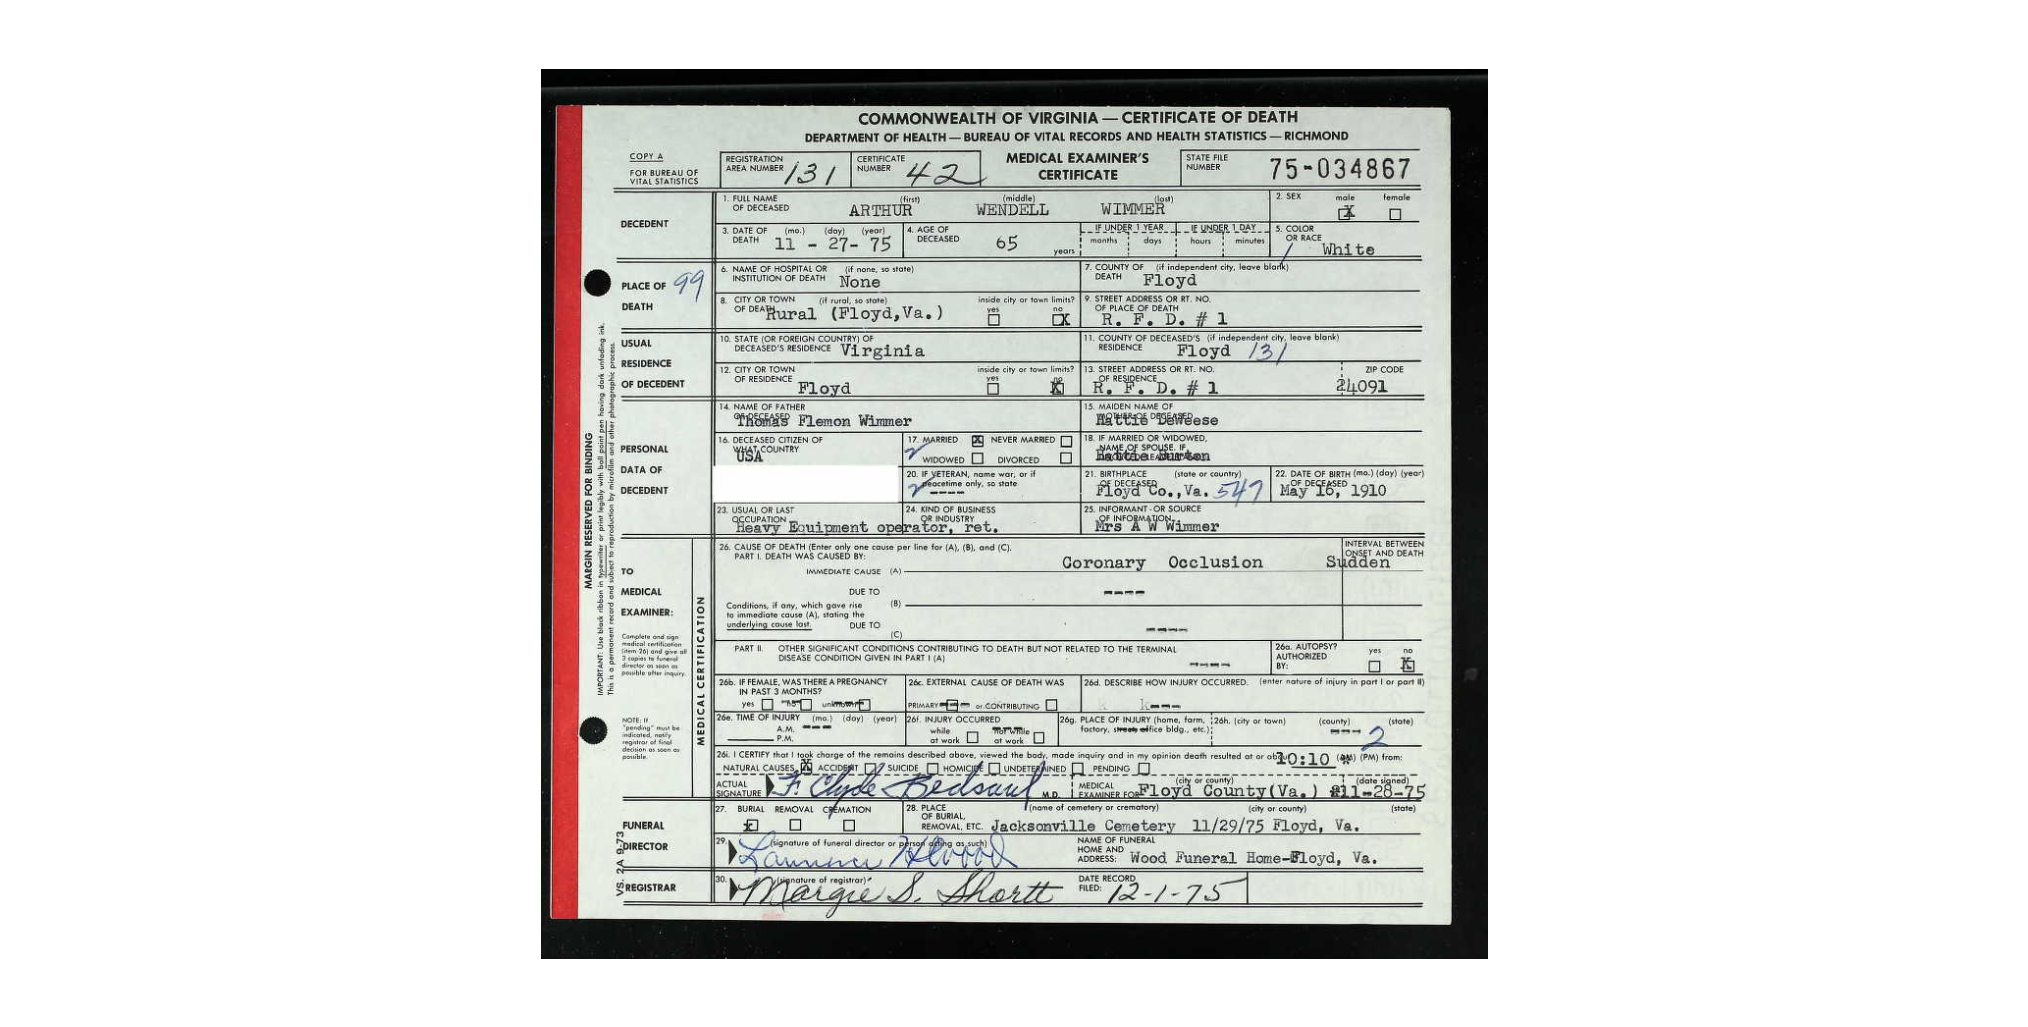 COMMONWEALTH OF VIRGINIA — CERTIFICATE OF DEATH
DEPARTMENT OF HEALTH — BUREAU OF VITAL RECORDS AND HEALTH STATISTICS — RICHMOND
COPY A
FOR BUREAU OF VITAL STATISTICS
REGISTRATION AREA NUMBER 131
CERTIFICATE NUMBER 42
MEDICAL EXAMINER'S CERTIFICATE
STATE FILE NUMBER 75-034867
DECEDENT
1. FULL NAME OF DECEASED (first) (middle) (last) ARTHUR WENDELL WIMMER
2. SEX male X female
3. DATE OF DEATH (mo.) (day) (year) 11 - 27- 75
4. AGE OF DECEASED 65 years
IF UNDER 1 YEAR months days
IF UNDER 1 DAY hours minutes
5. COLOR OR RACE White
PLACE OF DEATH 99
6. NAME OF HOSPITAL OR INSTITUTION OF DEATH (if none, so state) None
7. COUNTY OF DEATH (if independent city, leave blank) Floyd
8. CITY OR TOWN OF DEATH (if rural, so state) Rural (Floyd,Va.)
inside city or town limits? yes no X
9. STREET ADDRESS OR RT. NO. OF PLACE OF DEATH R. F. D. # 1
USUAL RESIDENCE OF DECEDENT
10. STATE (OR FOREIGN COUNTRY) OF DECEASED'S RESIDENCE Virginia
11. COUNTY OF DECEASED'S RESIDENCE (if independent city, leave blank) Floyd 131
12. CITY OR TOWN OF RESIDENCE Floyd
inside city or town limits? yes no X
13. STREET ADDRESS OR RT. NO. OF RESIDENCE R. F. D. # 1
ZIP CODE 24091
PERSONAL DATA OF DECEDENT
14. NAME OF FATHER OF DECEASED Thomas Flemon Wimmer
15. MAIDEN NAME OF MOTHER OF DECEASED Hattie DeWeese
16. DECEASED CITIZEN OF WHAT COUNTRY USA
17. MARRIED X NEVER MARRIED
WIDOWED DIVORCED
18. IF MARRIED OR WIDOWED, NAME OF SPOUSE, IF
20. IF VETERAN, name war, or if peacetime only, so state ----
21. BIRTHPLACE OF DECEASED (state or country) Floyd Co.,Va. 547
22. DATE OF BIRTH OF DECEASED (mo.) (day) (year) May 16, 1910
23. USUAL OR LAST OCCUPATION Heavy Equipment operator, ret.
24. KIND OF BUSINESS OR INDUSTRY
25. INFORMANT - OR SOURCE OF INFORMATION Mrs A W Wimmer
MARGIN RESERVED FOR BINDING
IMPORTANT: Use black ribbon in typewriter or print legibly with ball point pen having dark unfading ink.
This is a permanent record and subject to reproduction by microfilm and other photographic process.
TO MEDICAL EXAMINER:
Complete and sign medical certification (item 26) and give all 3 copies to funeral director as soon as possible after inquiry.
NOTE: If "pending" must be indicated, notify registrar of final decision as soon as possible.
MEDICAL CERTIFICATION
26. CAUSE OF DEATH (Enter only one cause per line for (A), (B), and (C).
PART I. DEATH WAS CAUSED BY:
INTERVAL BETWEEN ONSET AND DEATH
IMMEDIATE CAUSE (A) Coronary Occlusion Sudden
DUE TO ----
Conditions, if any, which gave rise to immediate cause (A), stating the underlying cause last. (B)
DUE TO ----
(C)
PART II. OTHER SIGNIFICANT CONDITIONS CONTRIBUTING TO DEATH BUT NOT RELATED TO THE TERMINAL DISEASE CONDITION GIVEN IN PART I (A) ----
26a. AUTOPSY? AUTHORIZED BY: yes no X
26b. IF FEMALE, WAS THERE A PREGNANCY IN PAST 3 MONTHS?
yes no unknown
26c. EXTERNAL CAUSE OF DEATH WAS
PRIMARY or CONTRIBUTING
26d. DESCRIBE HOW INJURY OCCURRED. (enter nature of injury in part I or part II)
26e. TIME OF INJURY (mo.) (day) (year)
A.M. ---
P.M.
26f. INJURY OCCURRED
while at work not while at work
26g. PLACE OF INJURY (home, farm, factory, street, office bldg., etc.)
26h. (city or town) (county) (state) --- 2
26i. I CERTIFY that I took charge of the remains described above, viewed the body, made inquiry and in my opinion death resulted at or about 10:10 (PM) from:
NATURAL CAUSES X ACCIDENT SUICIDE HOMICIDE UNDETERMINED PENDING
ACTUAL SIGNATURE F. Clyde Bedsaul M.D.
MEDICAL EXAMINER FOR (city or county) Floyd County(Va.) (date signed) 11-28-75
FUNERAL DIRECTOR
27. BURIAL X REMOVAL CREMATION
28. PLACE OF BURIAL, REMOVAL, ETC. (name of cemetery or crematory) (city or county) (state)
Jacksonville Cemetery 11/29/75 Floyd, Va.
29. (signature of funeral director or person acting as such)
NAME OF FUNERAL HOME AND ADDRESS: Wood Funeral Home-Floyd, Va.
REGISTRAR
30. (signature of registrar) Margie S. Shortt
DATE RECORD FILED: 12-1-75
VS. 2A 9-73